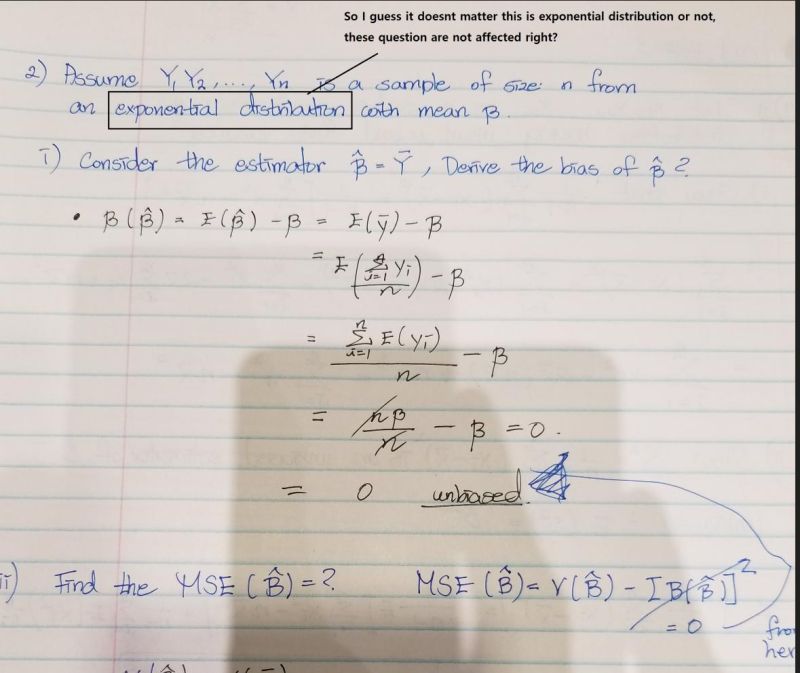 So I guess it doesnt matter this is exponential distribution or not,
these question are not affected right?
2) Assume Y1 Y2, ..., Yn is a sample of size n from
an exponential distribution with mean β.
i) Consider the estimator β̂ = Ȳ, Derive the bias of β̂ ?
• B(β̂) = E(β̂) - β = E(ȳ) - β
= E(∑ᵢ₌₁ⁿ Yi / n) - β
= ∑ᵢ₌₁ⁿ E(Yi) / n - β
= nβ / n - β = 0.
= 0 unbiased.
ii) Find the MSE (β̂) = ? MSE (β̂) = V(β̂) - [B(β̂)]²
= 0